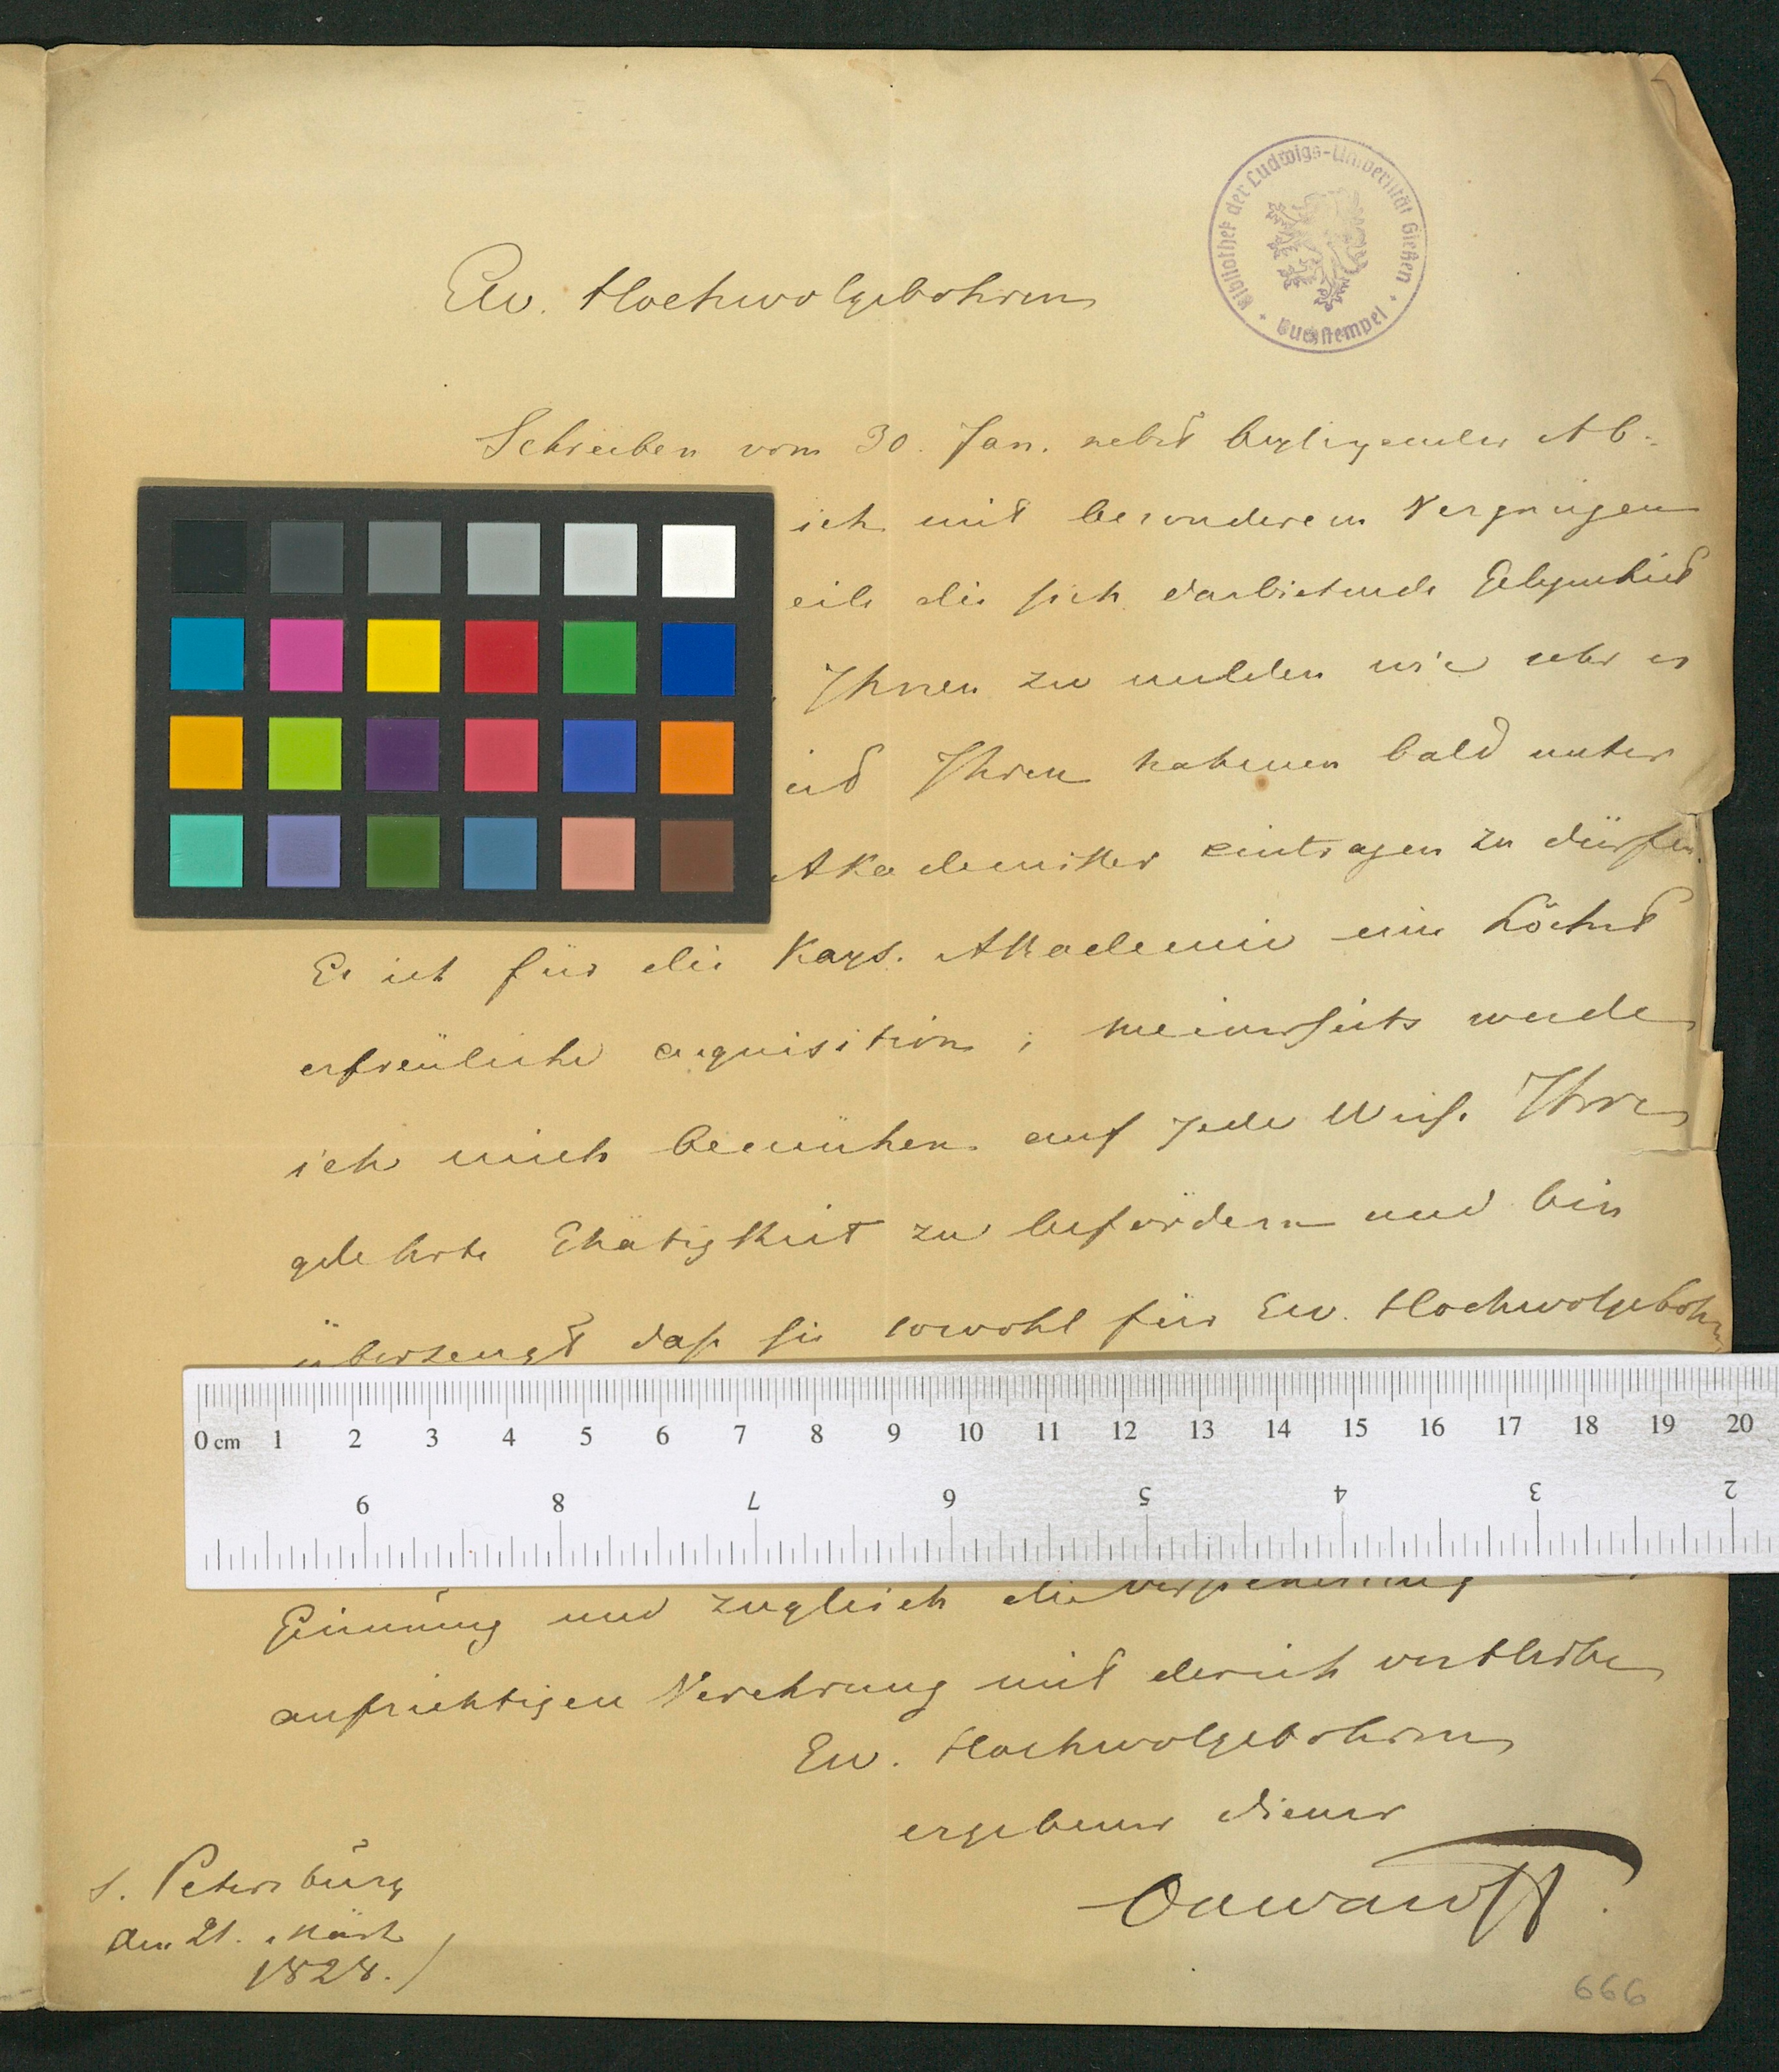 Bibliothek der Ludwigs-Universität Gießen
Buchstempel
Ew. Hochwolgebohren
Schreiben vom 30. Jan. nebst beyligender Ab-
ich mit besonderem Vergnügen
eile die sich darbietende Gelegenheit
Ihnen zu melden wie sehr es
Ihren nahmen bald unter
Akademiker eintragen zu dürfen.
Es ist für die Kays. Akademie eine höchst
erfreuliche acquisition; meinerseits werde
ich mich bemühen auf jede Weise Ihre
gelehrte Thätigkeit zu befördern und bin
überzeugt daß sie sowohl für Ew. Hochwolgebohr
0 cm 1 2 3 4 5 6 7 8 9 10 11 12 13 14 15 16 17 18 19 20
9 8 7 6 5 4 3 2
und zugleich die
aufrichtigen Verehrung mit der ich verbleibe
Ew. Hochwolgebohren
ergebener diener
Ouwaroff.
s. Petersburg
den 21. März
1828.
666